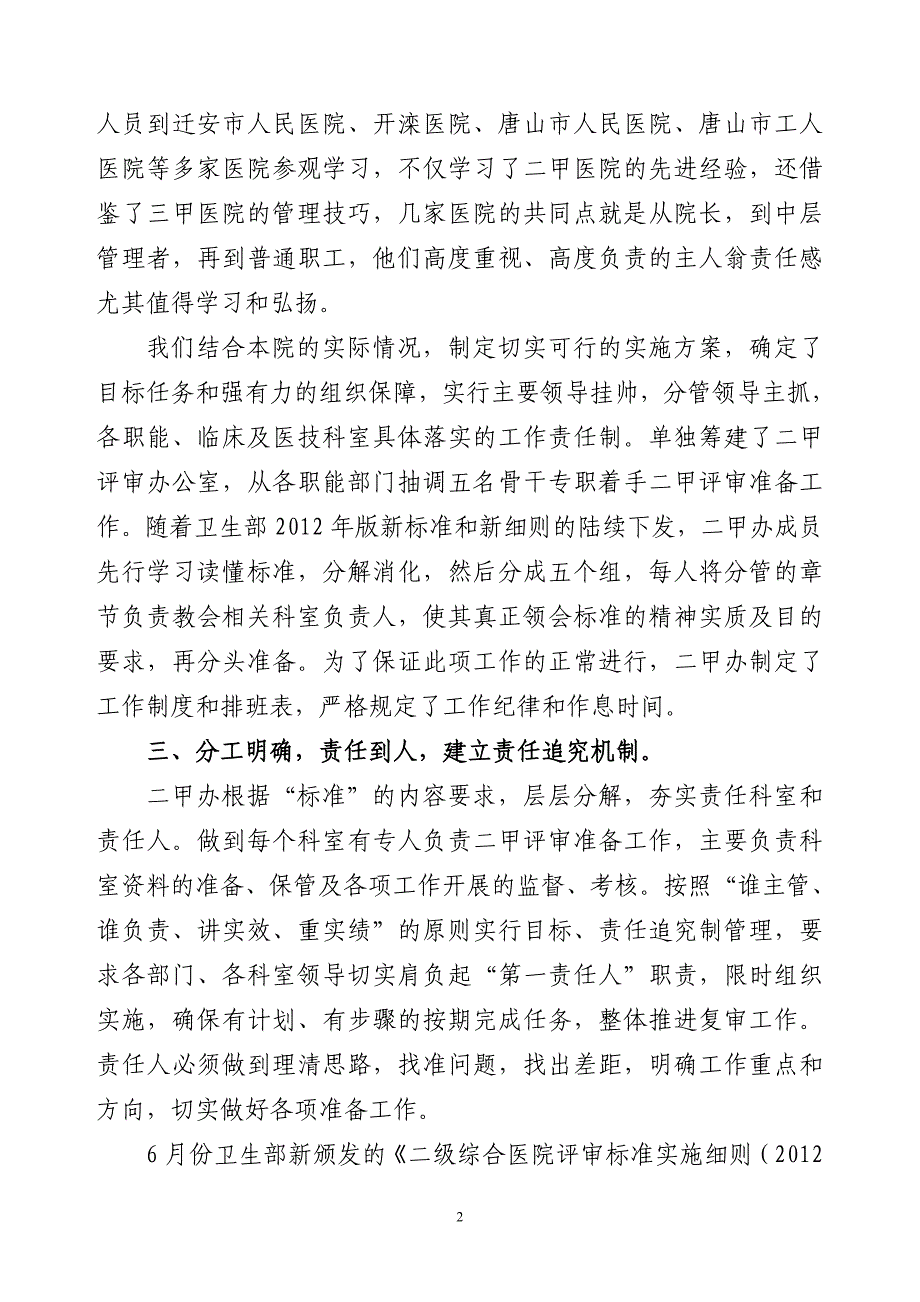 人员到迁安市人民医院、开滦医院、唐山市人民医院、唐山市工人
医院等多家医院参观学习，不仅学习了二甲医院的先进经验，还借
鉴了三甲医院的管理技巧，几家医院的共同点就是从院长，到中层
管理者，再到普通职工，他们高度重视、高度负责的主人翁责任感
尤其值得学习和弘扬。
我们结合本院的实际情况，制定切实可行的实施方案，确定了
目标任务和强有力的组织保障，实行主要领导挂帅，分管领导主抓，
各职能、临床及医技科室具体落实的工作责任制。单独筹建了二甲
评审办公室，从各职能部门抽调五名骨干专职着手二甲评审准备工
作。随着卫生部2012年版新标准和新细则的陆续下发，二甲办成员
先行学习读懂标准，分解消化，然后分成五个组，每人将分管的章
节负责教会相关科室负责人，使其真正领会标准的精神实质及目的
要求，再分头准备。为了保证此项工作的正常进行，二甲办制定了
工作制度和排班表，严格规定了工作纪律和作息时间。
三、分工明确，责任到人，建立责任追究机制。
二甲办根据“标准”的内容要求，层层分解，夯实责任科室和
责任人。做到每个科室有专人负责二甲评审准备工作，主要负责科
室资料的准备、保管及各项工作开展的监督、考核。按照“谁主管、
谁负责、讲实效、重实绩”的原则实行目标、责任追究制管理，要
求各部门、各科室领导切实肩负起“第一责任人”职责，限时组织
实施，确保有计划、有步骤的按期完成任务，整体推进复审工作。
责任人必须做到理清思路，找准问题，找出差距，明确工作重点和
方向，切实做好各项准备工作。
6月份卫生部新颁发的《二级综合医院评审标准实施细则（2012
2